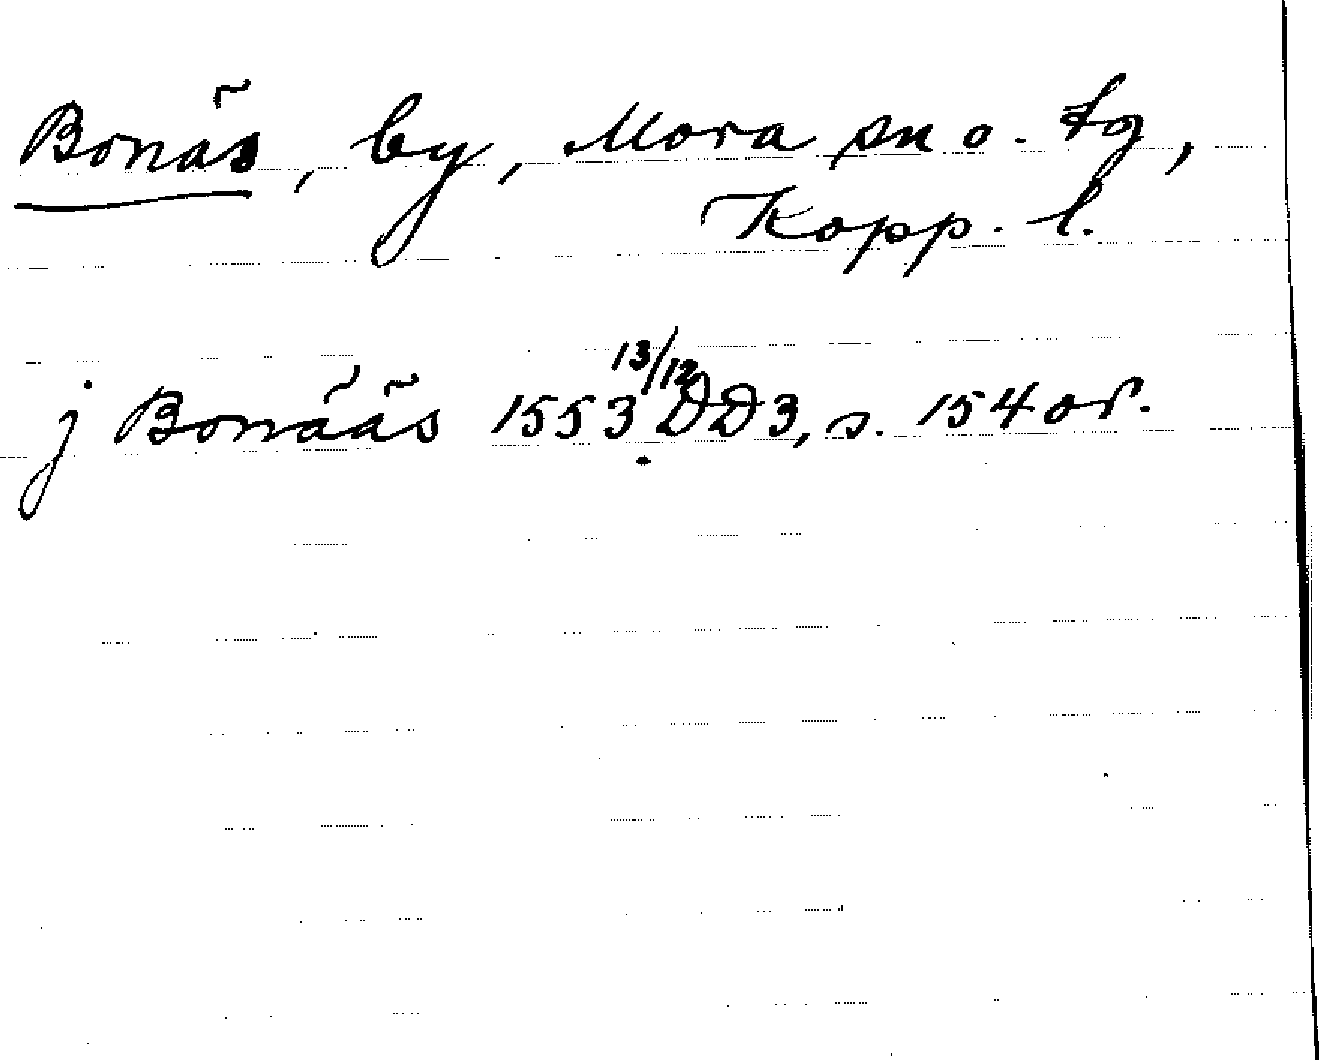 Bonäs, by, Mora sn o. tg,
Kopp. l.
j Bonääs 1553 13/12 DD3, s. 154 or.